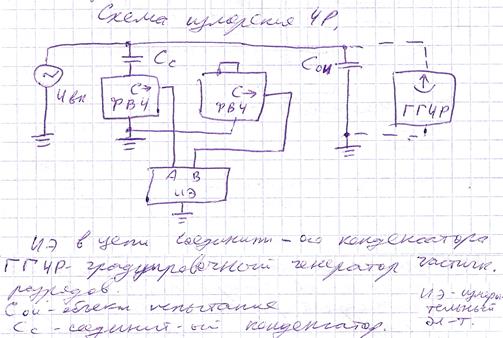 Схема измерения ЧР.
Cc
Cои
Uвн
C→
РВЧ
C→
РВЧ
ГГЧР
A B
ИЭ
ИЭ в цепи соединит-ого конденсатора
ГГЧР- градуировочный генератор частичн.
разрядов.
Cои - объект испытания
Cc - соединит-ый конденсатор.
ИЭ - измери
тельный
эл-т.